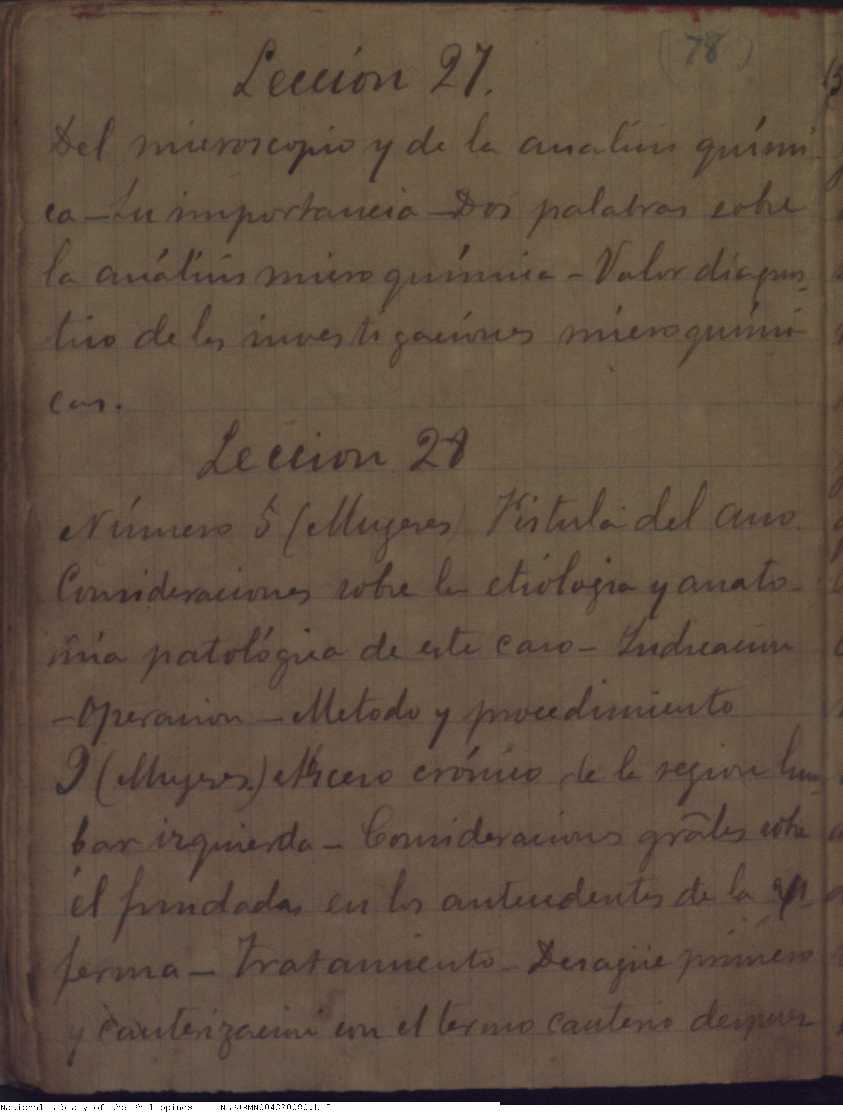 (78)
Leccion 27.
Del microscopio y de la análisis quími-
ca - Su importancia - Dos palabras sobre
la análisis microquímica - Valor diagnos-
tico de las investigaciones microquími
cas.
Leccion 28
Número 5 (Mugeres) Fistula del ano
Consideraciones sobre la etiologia y anato-
mía patológica de este caso - Indicacion
- Operacion - Metodo y procedimiento
9 (Mugeres) Abceso crónico de la region lum-
bar izquierda - Consideraciones grāles sobre
él fundadas en los antecedentes de la en-
ferma - Tratamiento - Desagüe primero
y cauterizacion con el termo cauterio despues
National Library of the Philippines